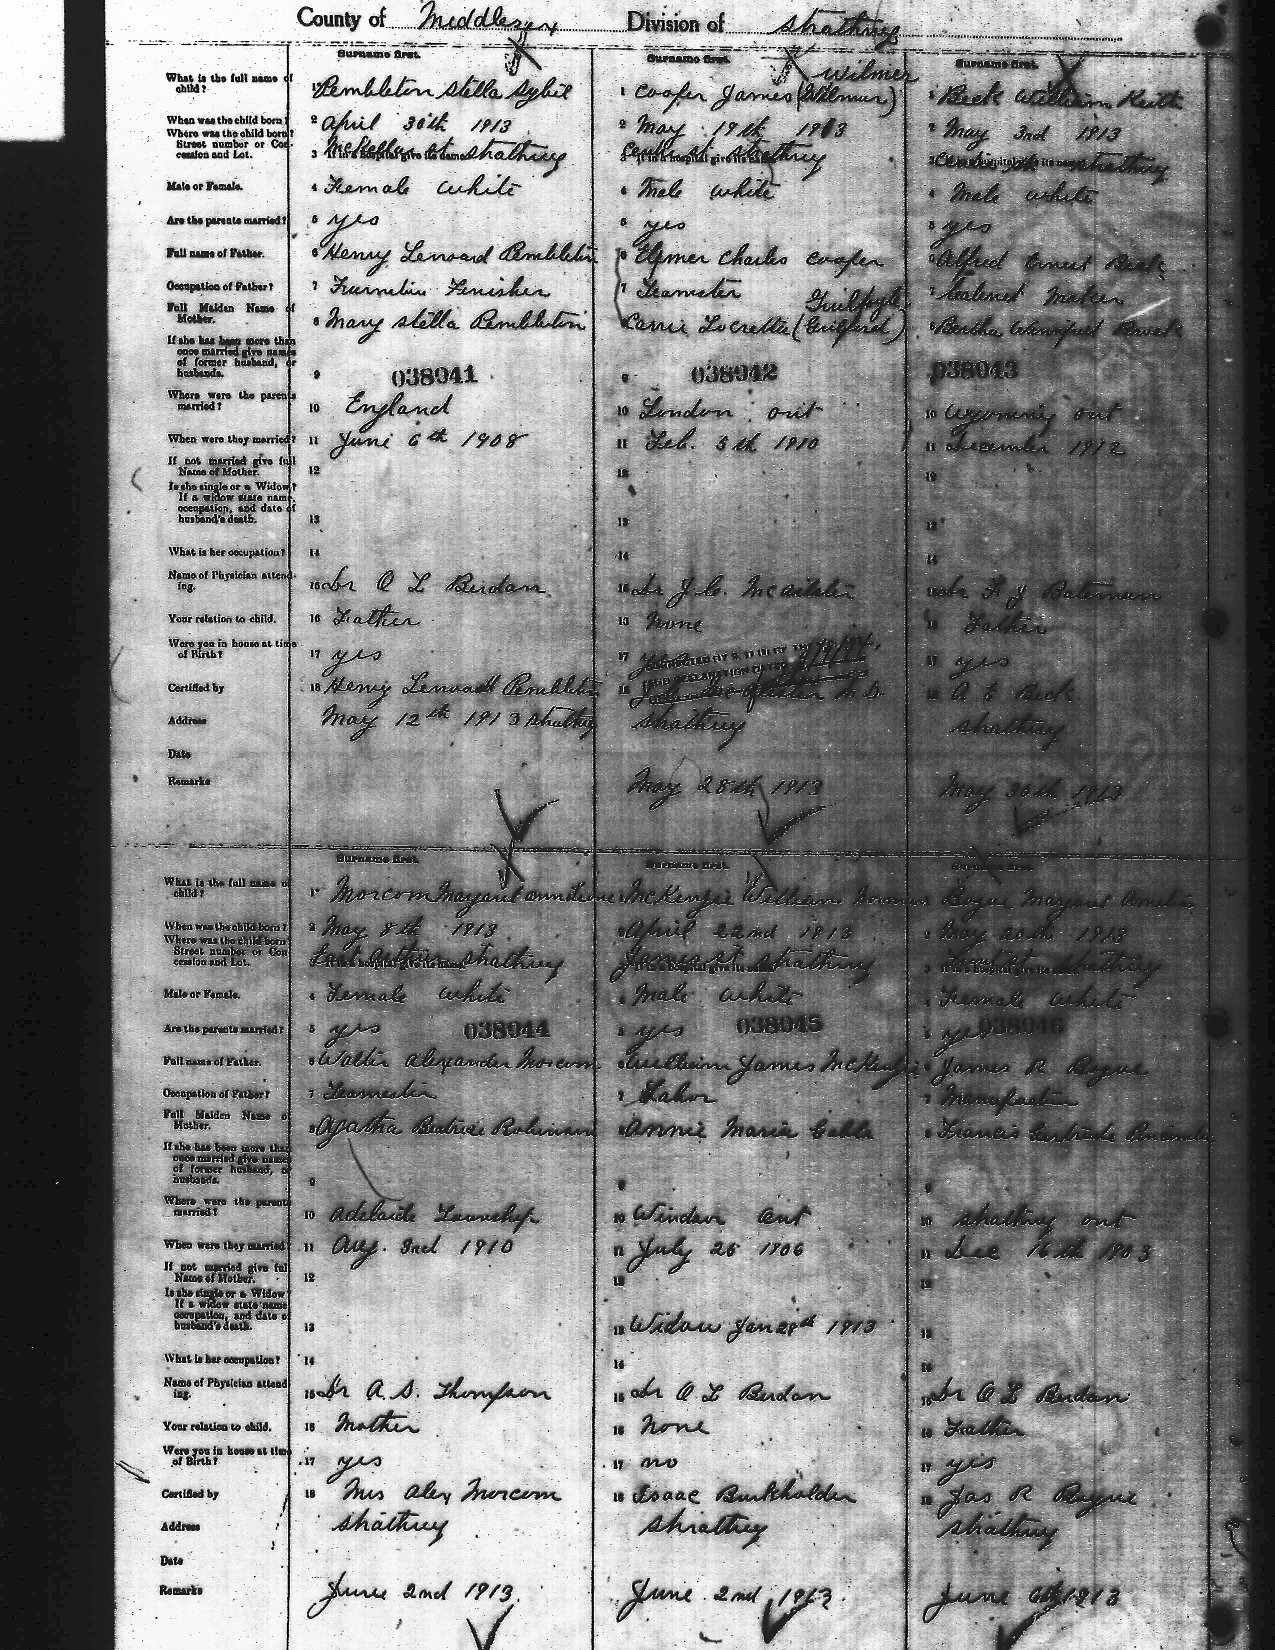 County of Middlesex Division of Strathroy
Surname first. Surname first. Surname first.
Wilmer
What is the full name of child? 1 Pembleton Stella Sybil 1 Cooper James (Wilmur) 1 Beck William Keith
When was the child born? 2 April 30th 1913 2 May 19th 1913 2 May 3rd 1913
Where was the child born? Street number or Concession and Lot. 3 If in a hospital give its name McKellar st Strathroy 3 If in a hospital give its name st Strathroy 3 Strathroy
Male or Female. 4 Female white 4 Male white 4 Male white
Are the parents married? 5 yes 5 yes 5 yes
Full name of Father. 6 Henry Lenoard Pembleton 6 Elymer Charles Cooper 6 Alfred Ernest Beck
Occupation of Father? 7 Furniture Finisher 7 Teamster 7 Maker
Guilfoyle
Full Maiden Name of Mother. 8 Mary Stella Pembleton Carrie Locretta (Guilford) 8 Bertha Winnifred
If she has been more than once married give names of former husband, or husbands. 9 038041 9 038042 038043
Where were the parents married? 10 England 10 London ont 10 Wyoming ont
When were they married? 11 June 6th 1908 11 Feb. 5th 1910 11 December 1912
If not married give full Name of Mother. 12 12 12
Is she single or a Widow? If a widow state name, occupation, and date of husband's death. 13 13 13
What is her occupation? 14 14 14
Name of Physician attending. 15 Dr O L Berdan 15 Dr J. C. 15 Dr F J Bateman
Your relation to child. 16 Father 16 None 16 Father
Were you in house at time of Birth? 17 yes 17 17 yes
Certified by 18 Henry Lenoard Pembleton 18 M.D. 18 A E Beck
Address May 12th 1913 Strathroy Strathroy Strathroy
Date
Remarks May 28th 1913 May 30th 1913
Surname first. Surname first. Surname first.
What is the full name of child? 1 Morcom Margaret McKenzie William Norman Bogue Margaret Amelia
When was the child born? 2 May 8th 1913 2 April 22nd 1913 2 May 20th 1913
Where was the child born? Street number or Concession and Lot. Strathroy James st Strathroy 3 Strathroy
Male or Female. 4 Female white 4 Male white 4 Female white
Are the parents married? 5 yes 038044 5 yes 038045 5 yes 038046
Full name of Father. 6 Walter Alexander Morcom 6 William James McKenzie 6 James R Bogue
Occupation of Father? 7 Teamster 7 Labor 7
Full Maiden Name of Mother. 8 Agatha Beatrice Robinson 8 Annie Maria Cable 8 Francis Gertrude
If she has been more than once married give names of former husband, or husbands. 9 9 9
Where were the parents married? 10 Adelaide Township 10 Windsor Ont 10 Strathroy ont
When were they married? 11 Aug. 3rd 1910 11 July 25 1906 11 Dec 16th 1903
If not married give full Name of Mother. 12 12 12
Is she single or a Widow? If a widow state name, occupation, and date of husband's death. 13 13 Widow Jan 1913 13
What is her occupation? 14 14 14
Name of Physician attending. 15 Dr A. S. Thompson 15 Dr O L Berdan 15 Dr O L Berdan
Your relation to child. 16 Mother 16 None 16 Father
Were you in house at time of Birth? 17 yes 17 no 17 yes
Certified by 18 Mrs Alex Morcom 18 Isaac Burkholder 18 Jas R Bogue
Address Strathroy Strathroy Strathroy
Date
Remarks June 2nd 1913. June 2nd 1913. June 6th 1913